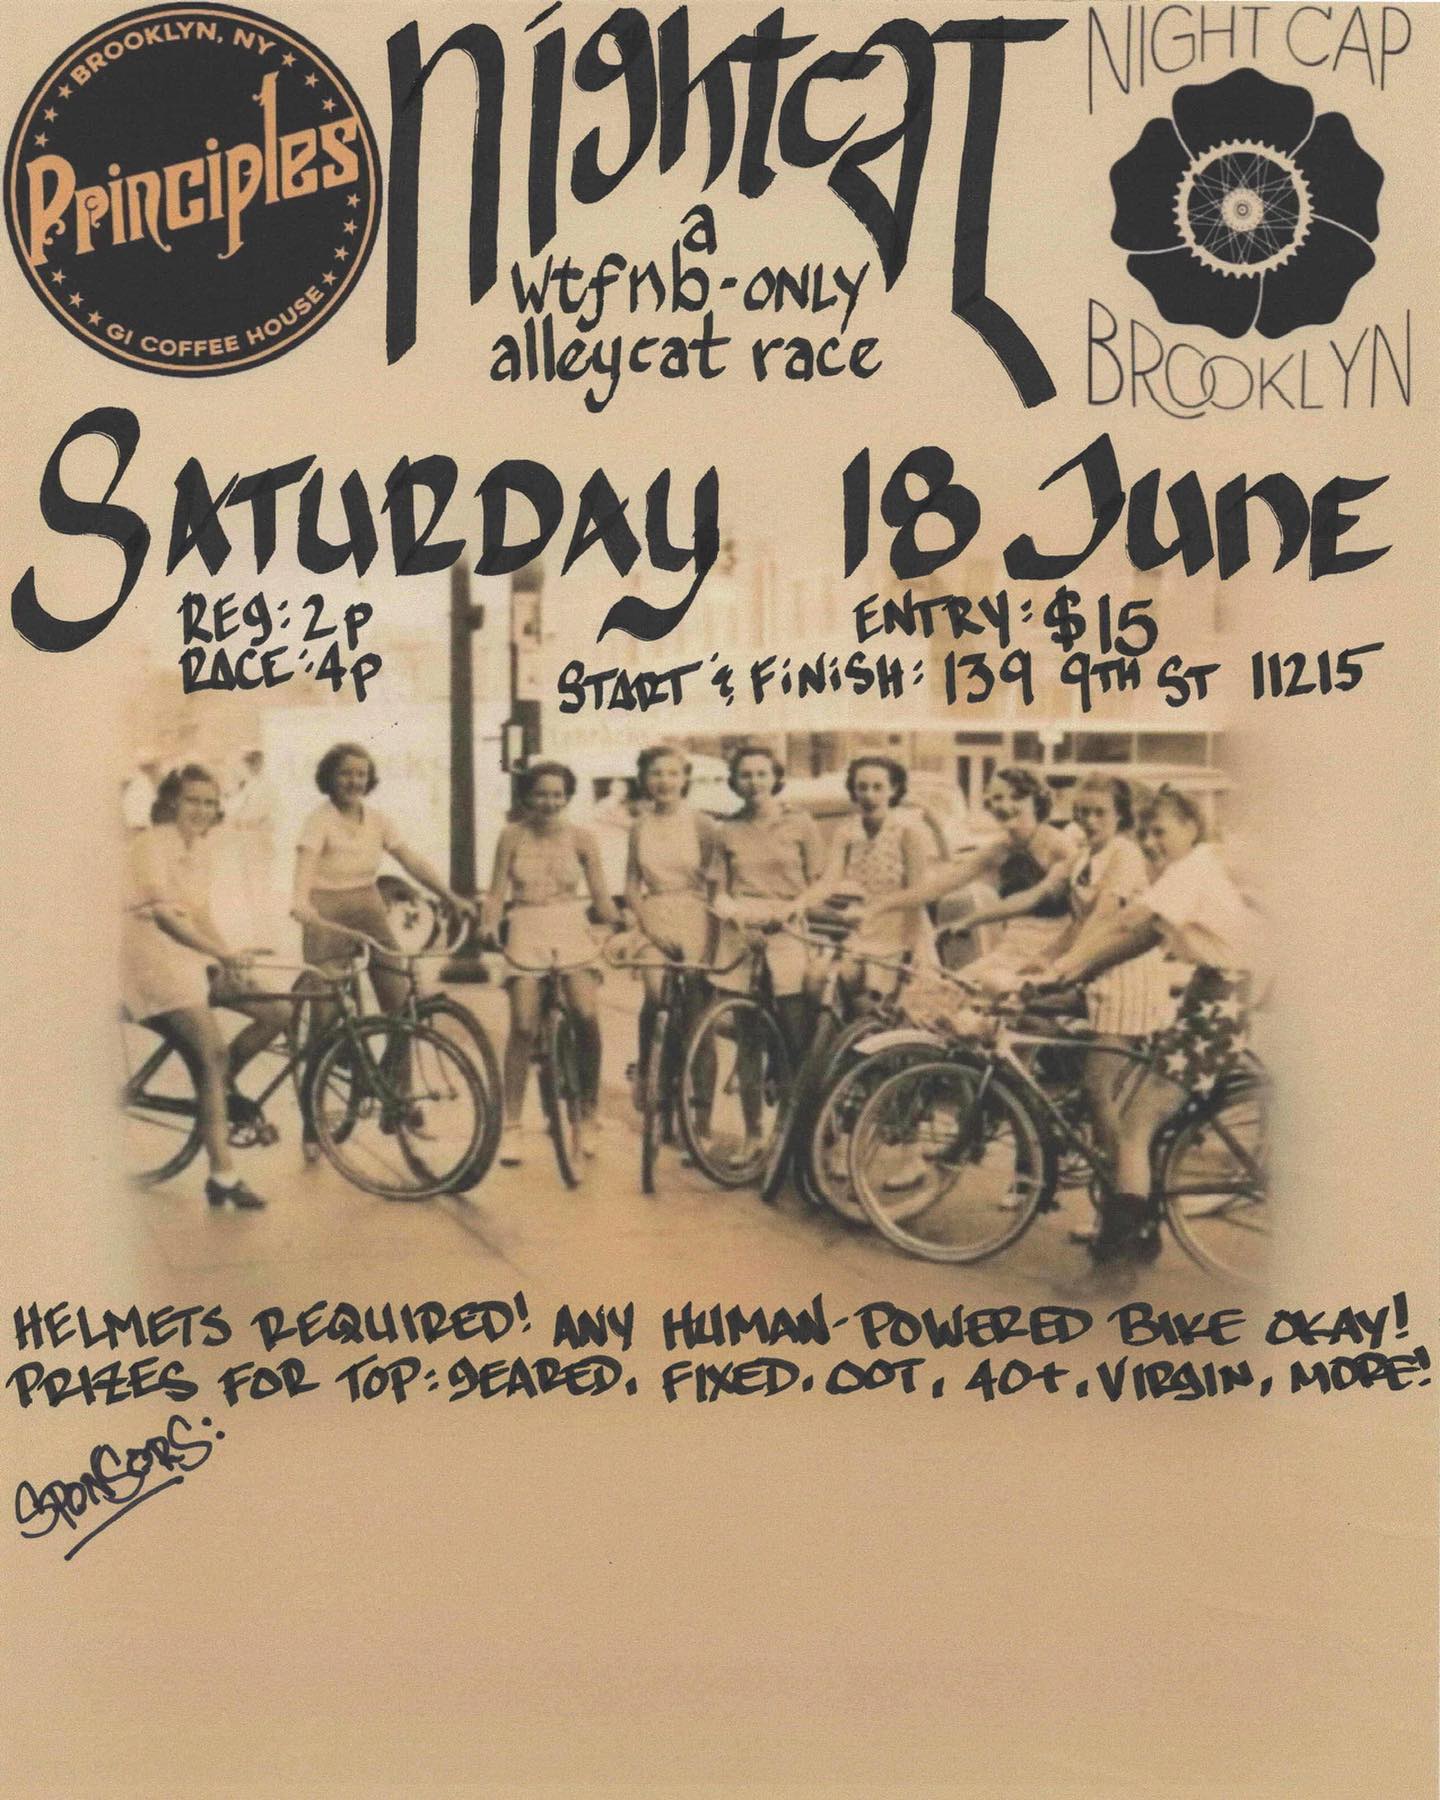 BROOKLYN, NY
Principles
GI COFFEE HOUSE
nightcat
a
wtfnb-ONLY
alleycat race
NIGHT CAP
BROOKLYN
SATURDAY 18 JUNE
REG: 2P
RACE: 4P
ENTRY: $15
START & FiNiSH: 139 9TH ST 11215
HELMETS REQUIRED! ANY HUMAN-POWERED BIKE OKAY!
PRIZES FOR TOP: GEARED, FIXED, OOT, 40+, VIRGIN, MORE!
SPONSORS: